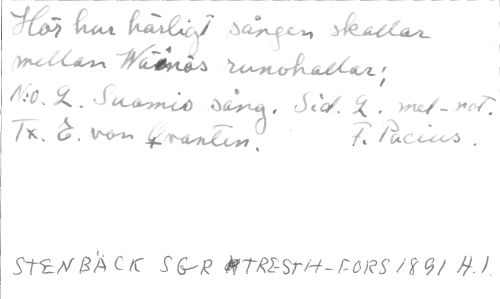 Hör hur härligt sången skallar
mellan Wäinös runohallar;
N:o. 2. Suomis sång. Sid. 2. mel-not.
Tx. E. von Qvanten. F. Pacius.
STENBÄCK SGR H-FORS 1891 H.1